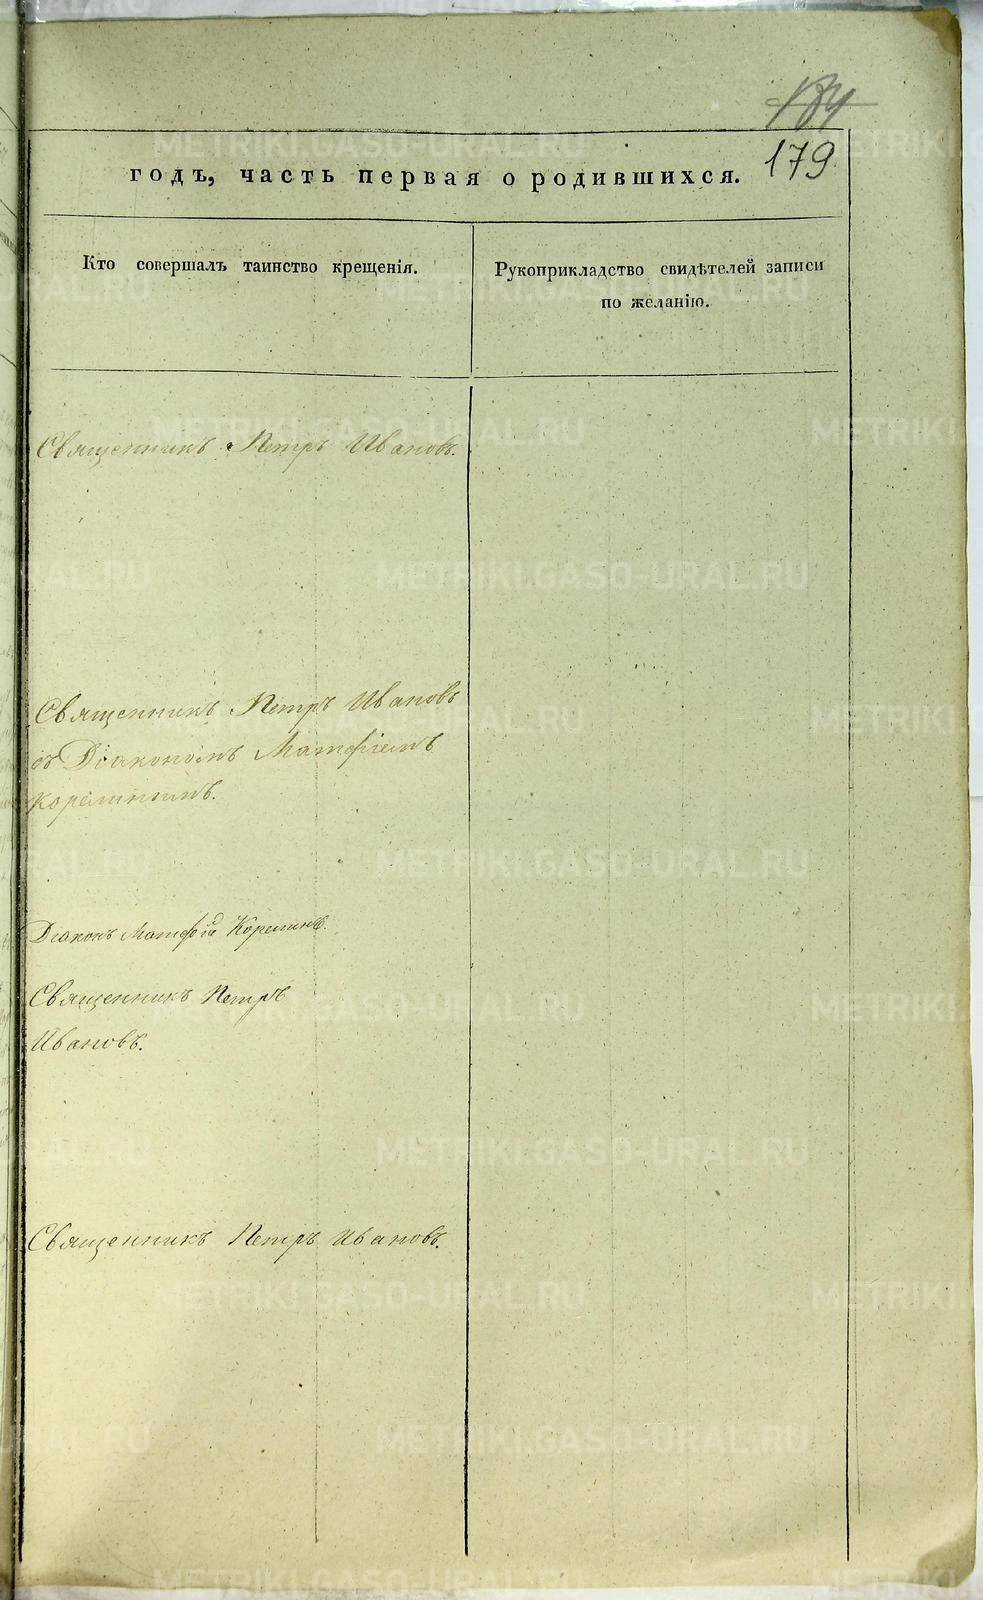 184
179
годъ, часть первая о родившихся.
Кто совершалъ таинство крещенія.
Рукоприкладство свидѣтелей записи
по желанію.
Священникъ Петръ Ивановъ.
Священникъ Петръ Ивановъ
съ Діакономъ Матфіемъ
Корелинымъ.
Діаконъ Матфій Корелинъ.
Священникъ Петръ
Ивановъ.
Священникъ Петръ Ивановъ.
METRIKI.GASO-URAL.RU